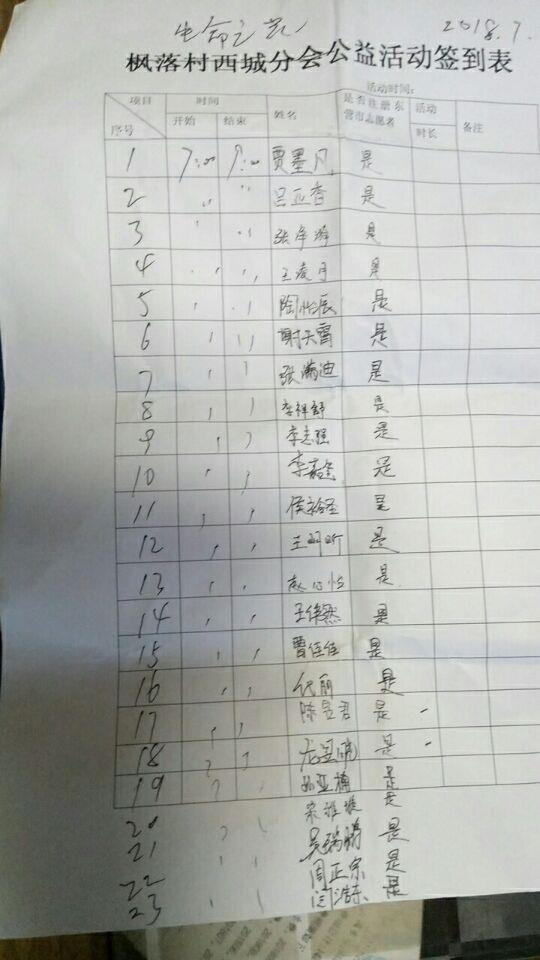 生命之家 2018.7.
枫落村西城分会公益活动签到表
活动时间:
项目 时间 姓名 是否注册东营市志愿者 活动时长 备注
序号 开始 结束
1 7:00 9:00 贾墨凡 是
2 〃 〃 吕亚香 是
3 〃 〃 是
4 〃 〃 王凌月 是
5 〃 〃 陶怡辰 是
6 〃 〃 谢天霄 是
7 〃 〃 张瀚迪 是
8 〃 〃 李祥舒 是
9 〃 〃 李志强 是
10 〃 〃 是
11 〃 〃 是
12 〃 〃 是
13 〃 〃 赵心怡 是
14 〃 〃 王倬然 是
15 〃 〃 曹佳佳 是
16 〃 〃 代丽 是
17 〃 〃 陈昱君 是
18 〃 〃 是
19 〃 〃 孙亚楠 是
20 〃 〃 宋雅璇 是
21 〃 〃 吴瑞鹏 是
22 〃 〃 周正宗 是
23 〃 〃 闫浩东 是